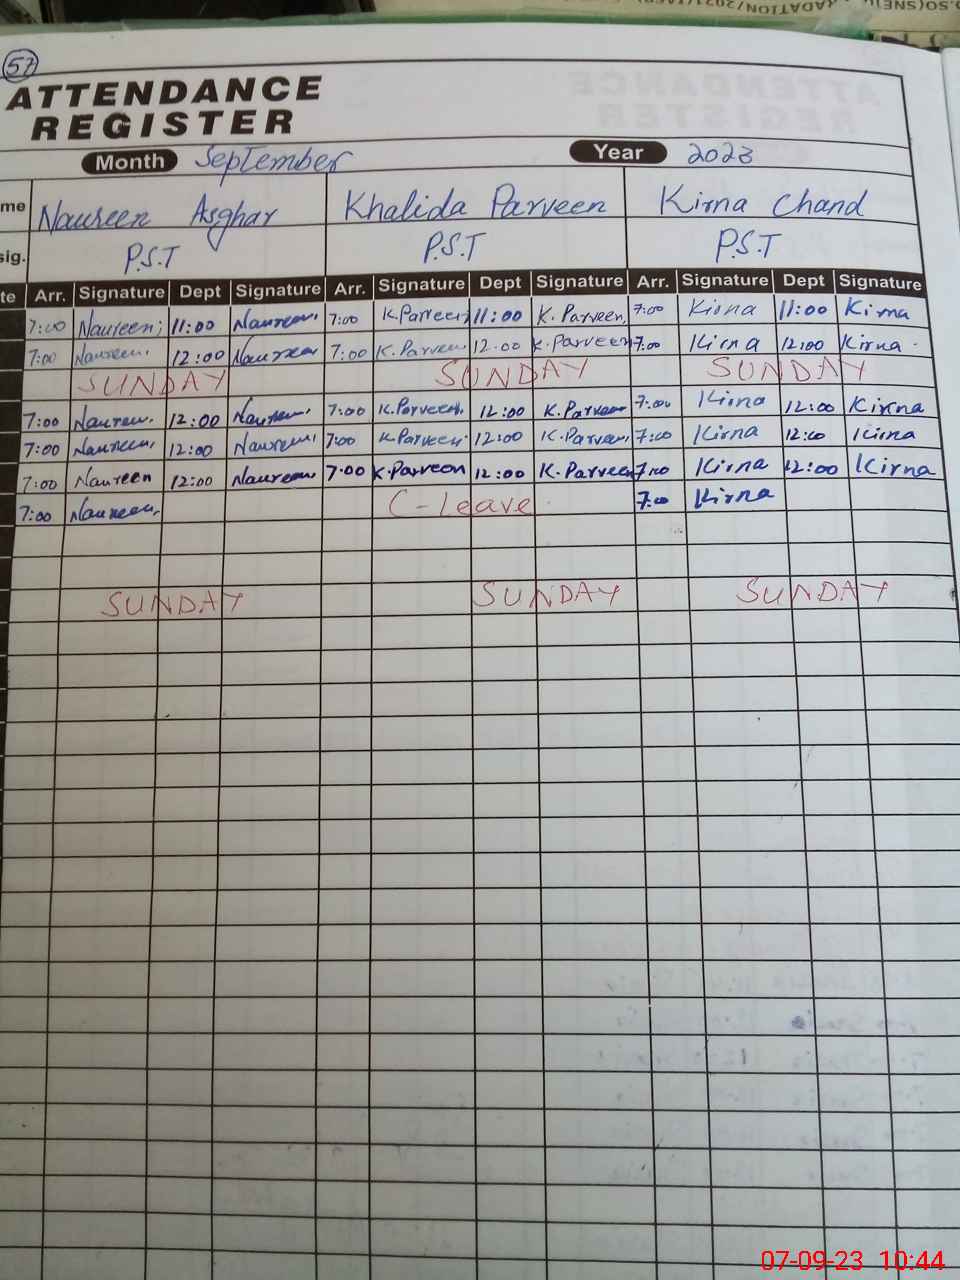 57
ATTENDANCE
REGISTER
Month September Year 2023
me Naureen Asghar Khalida Parveen Kirna Chand
sig. P.S.T P.S.T P.S.T
te Arr. Signature Dept Signature Arr. Signature Dept Signature Arr. Signature Dept Signature
7:00 Naureen; 11:00 Naureen. 7:00 K.Parveen; 11:00 K. Parveen, 7:00 Kirna 11:00 Kirna
7:00 Naureen. 12:00 Naureen 7:00 K.Parveen 12.00 K.Parveen 7.00 Kirna 12:00 Kirna.
SUNDAY SUNDAY SUNDAY
7:00 Naureen. 12:00 Naureen. 7:00 K.Parveen. 12:00 K.Parveen 7:00 Kirna 12:00 Kirna
7:00 Naureen. 12:00 Naureen. 7:00 K.Parveen. 12:00 K.Parveen, 7:00 Kirna 12:00 Kirna
7:00 Naureen 12:00 Naureen. 7:00 K.Parveen 12:00 K.Parveen 7:00 Kirna 12:00 Kirna
7:00 Naureen. C-Leave. 7.00 Kirna
SUNDAY SUNDAY SUNDAY
07-09-23 10:44